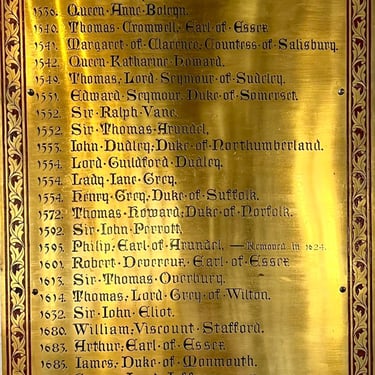 1536. Queen · Anne · Boleyn.
1540. Thomas · Cromwell, · Earl · of · Essex
1541. Margaret · of · Clarence, Countess · of · Salisbury.
1542. Queen · Katharine · Howard.
1549. Thomas, · Lord · Seymour · of · Sudeley.
1551. Edward · Seymour, Duke · of · Somerset.
1552. Sir · Ralph · Vane.
1552. Sir · Thomas · Arundel,
1553. Iohn · Dudley, Duke · of · Northumberland.
1554. Lord · Guildford · Dudley.
1554. Lady · Iane · Grey.
1554. Henry · Grey, Duke · of · Suffolk.
1572. Thomas · Howard, Duke · of · Norfolk.
1592. Sir · Iohn · Perrott.
1595. Philip, · Earl · of · Arundel, — Removed in 1624.
1601. Robert · Devereux · Earl · of · Essex
1613. Sir · Thomas · Overbury.
1614. Thomas, · Lord · Grey · of · Wilton.
1632. Sir · Iohn · Eliot.
1680. William, Viscount · Stafford.
1683. Arthur, · Earl · of · Essex
1685. Iames, · Duke · of · Monmouth.